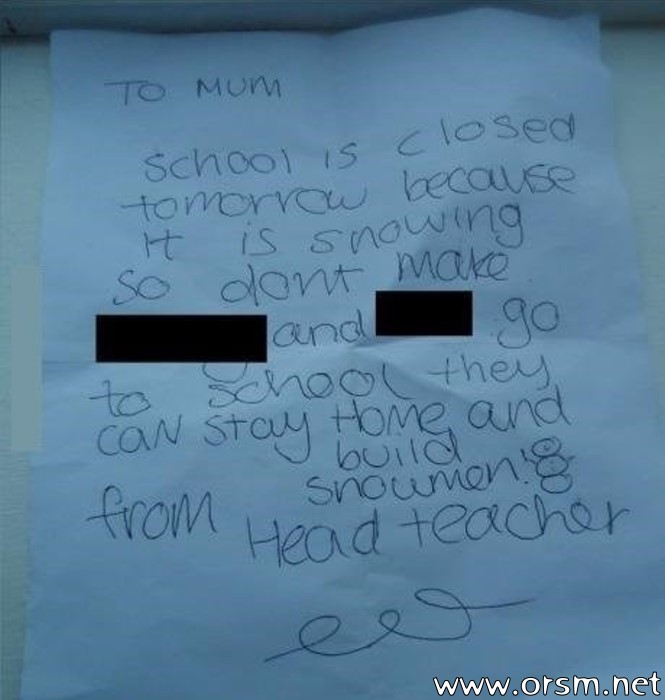 TO MUM
School is closed
tomorrow because
it is snowing
so dont make
and go
to school they
can stay Home and
build
snowmen!
from Head teacher
www.orsm.net